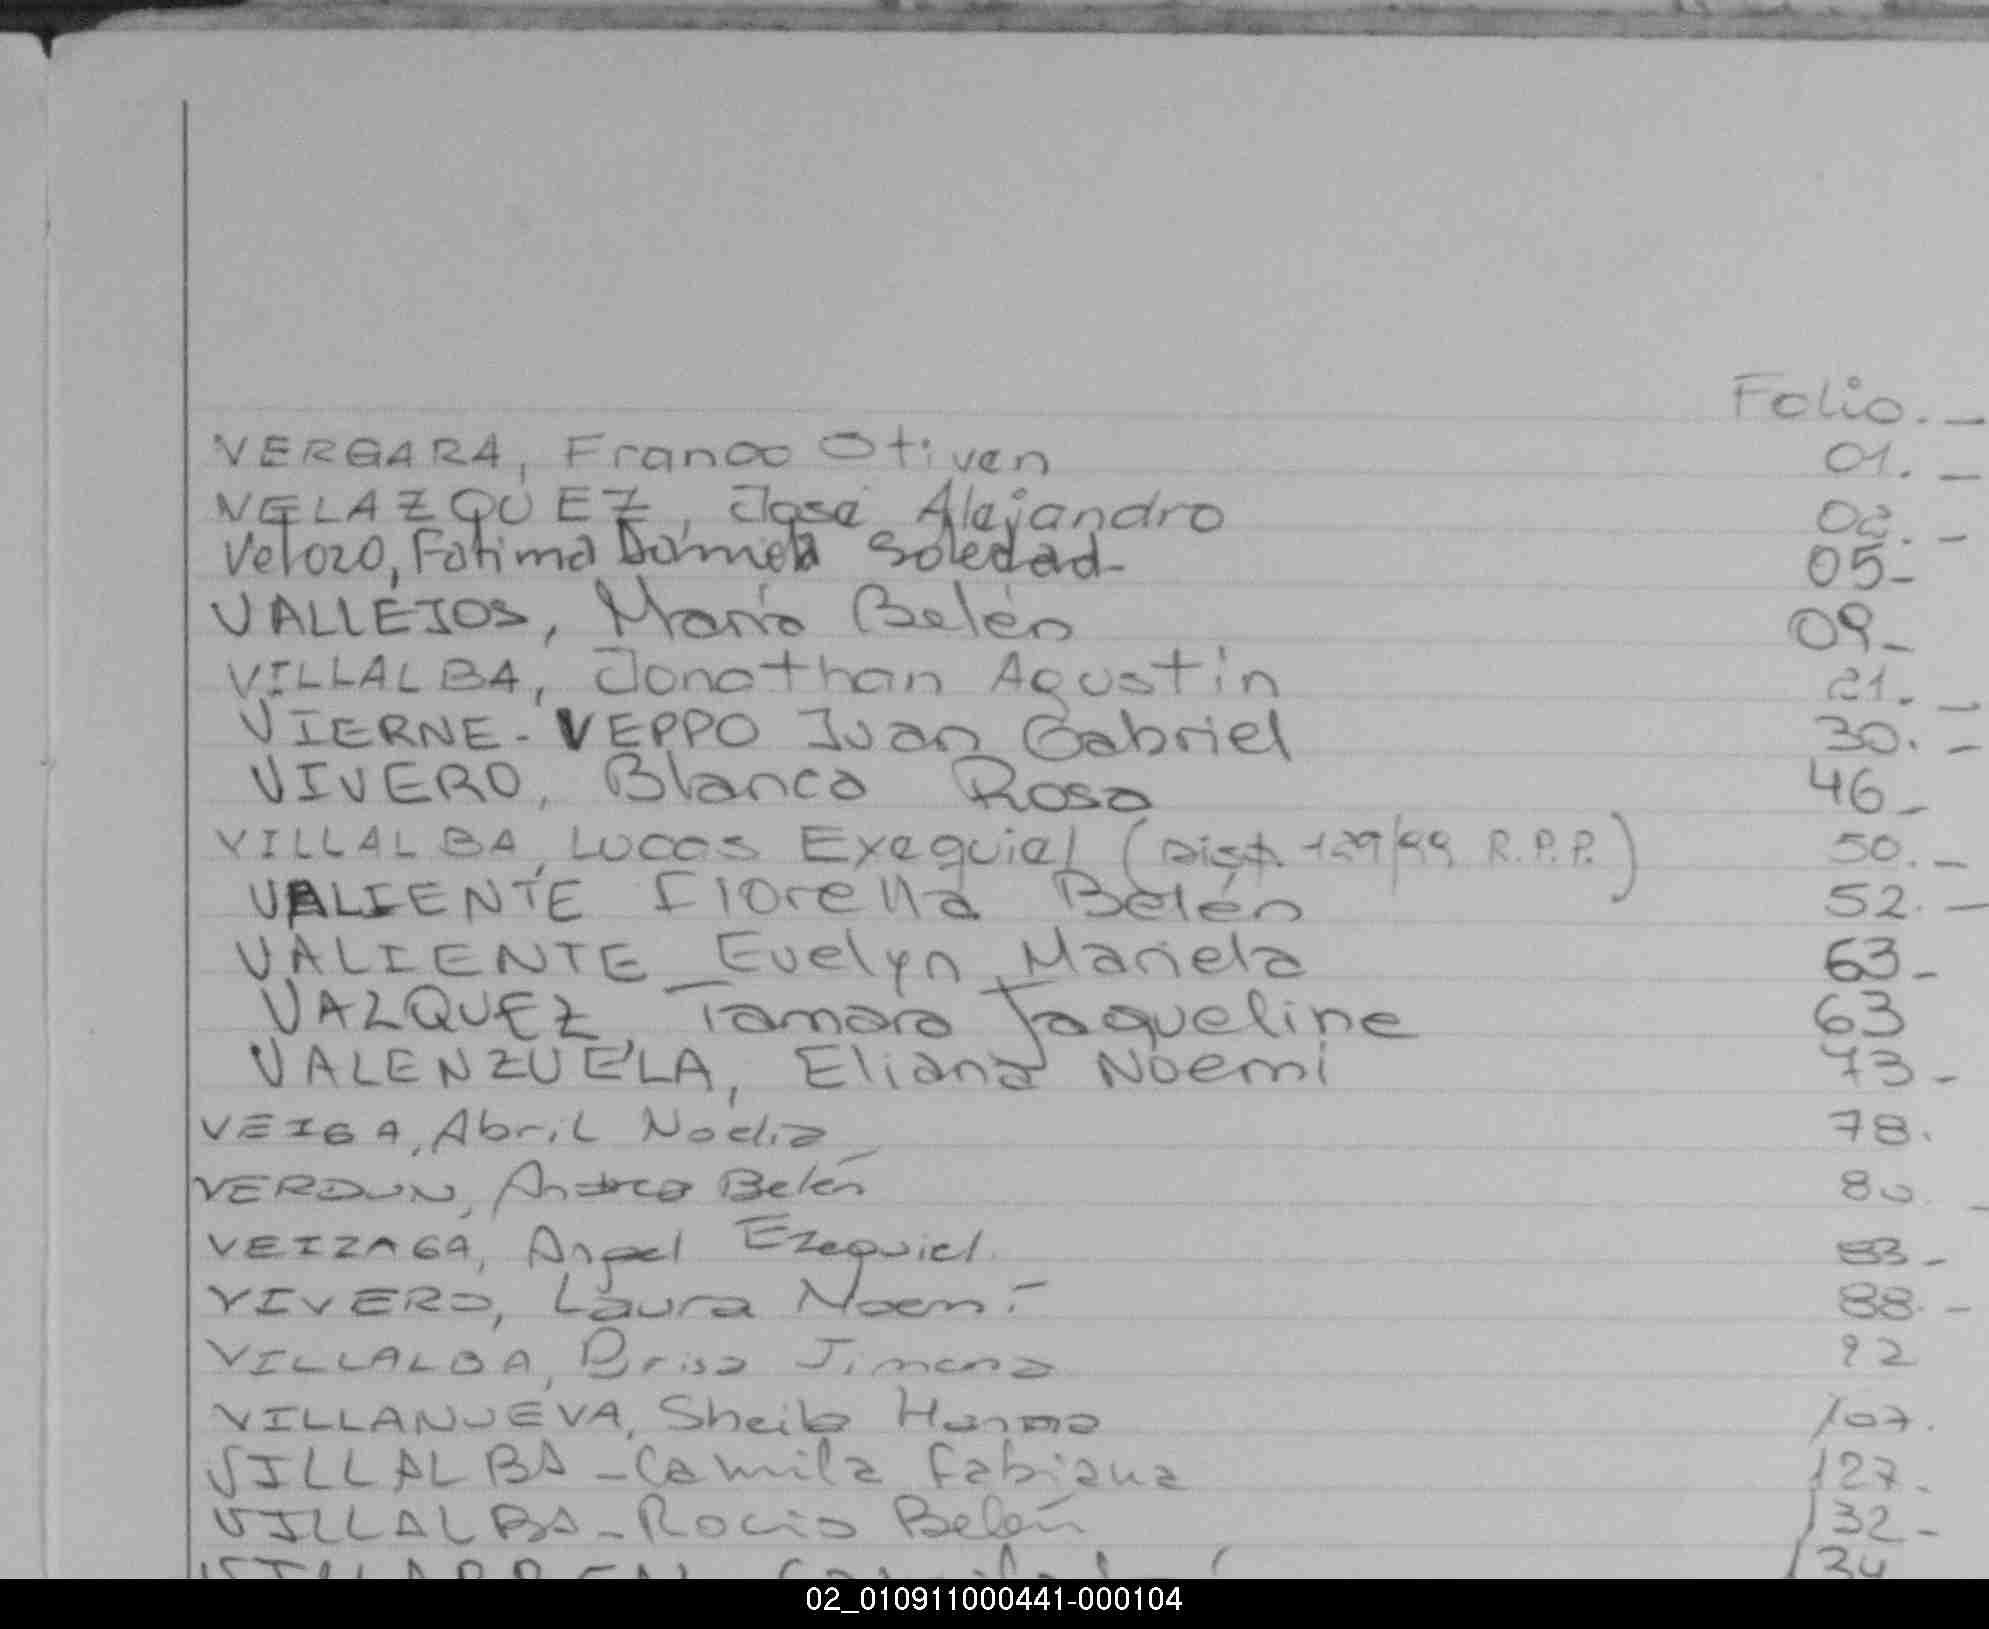 Folio._
VERGARA, Franco Stiven 01._
VELAZQUEZ, José Alejandro 02._
Velozo, Fatima Daniela Soledad- 05-
VALLEJOS, María Belén 09_
VILLALBA, Jonathan Agustin 21._
VIERNE-VEPPO Juan Gabriel 30.-
VIVERO, Blanca Rosa 46_
VILLALBA, Lucas Exequiel (Disp. 129/99 R.P.P.) 50._
VALIENTE Fiorella Belén 52._
VALIENTE Evelyn Mariela 63_
VAZQUEZ, Tamara Jaqueline 63
VALENZUELA, Eliana Noemi 73-
VEIGA, Abril Nadia 78.
VERDUN, Andrea Belén 80
VEIZAGA, Angel Ezequiel. 83-
VIVERO, Laura Noemí 88.-
VILLALBA, Brisa Jimena 92
VILLANUEVA, Sheila Hanna 107.
VILLALBA-Camila Fabiana 127.
VILLALBA-Rocio Belén 132-
134
02_010911000441-000104